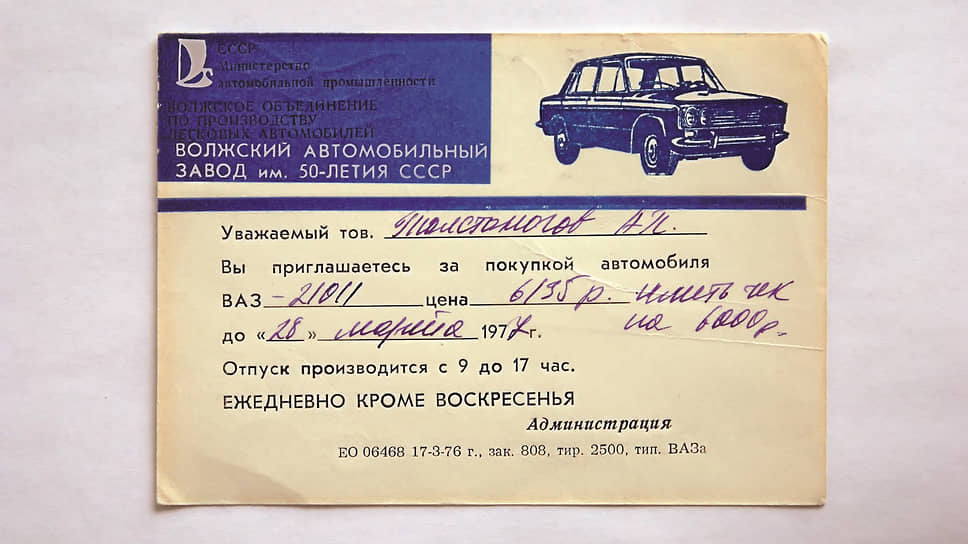 СССР
Министерство
автомобильной промышленности
ВОЛЖСКОЕ ОБЪЕДИНЕНИЕ
ПО ПРОИЗВОДСТВУ
ЛЕГКОВЫХ АВТОМОБИЛЕЙ
ВОЛЖСКИЙ АВТОМОБИЛЬНЫЙ
ЗАВОД им. 50-ЛЕТИЯ СССР
Уважаемый тов. Толстоногов А.П.
Вы приглашаетесь за покупкой автомобиля
ВАЗ -21011 цена 6135 р. иметь чек
до «28» марта 1977 г. на 6000 р.
Отпуск производится с 9 до 17 час.
ЕЖЕДНЕВНО КРОМЕ ВОСКРЕСЕНЬЯ
Администрация
ЕО 06468 17-3-76 г., зак. 808, тир. 2500, тип. ВАЗа